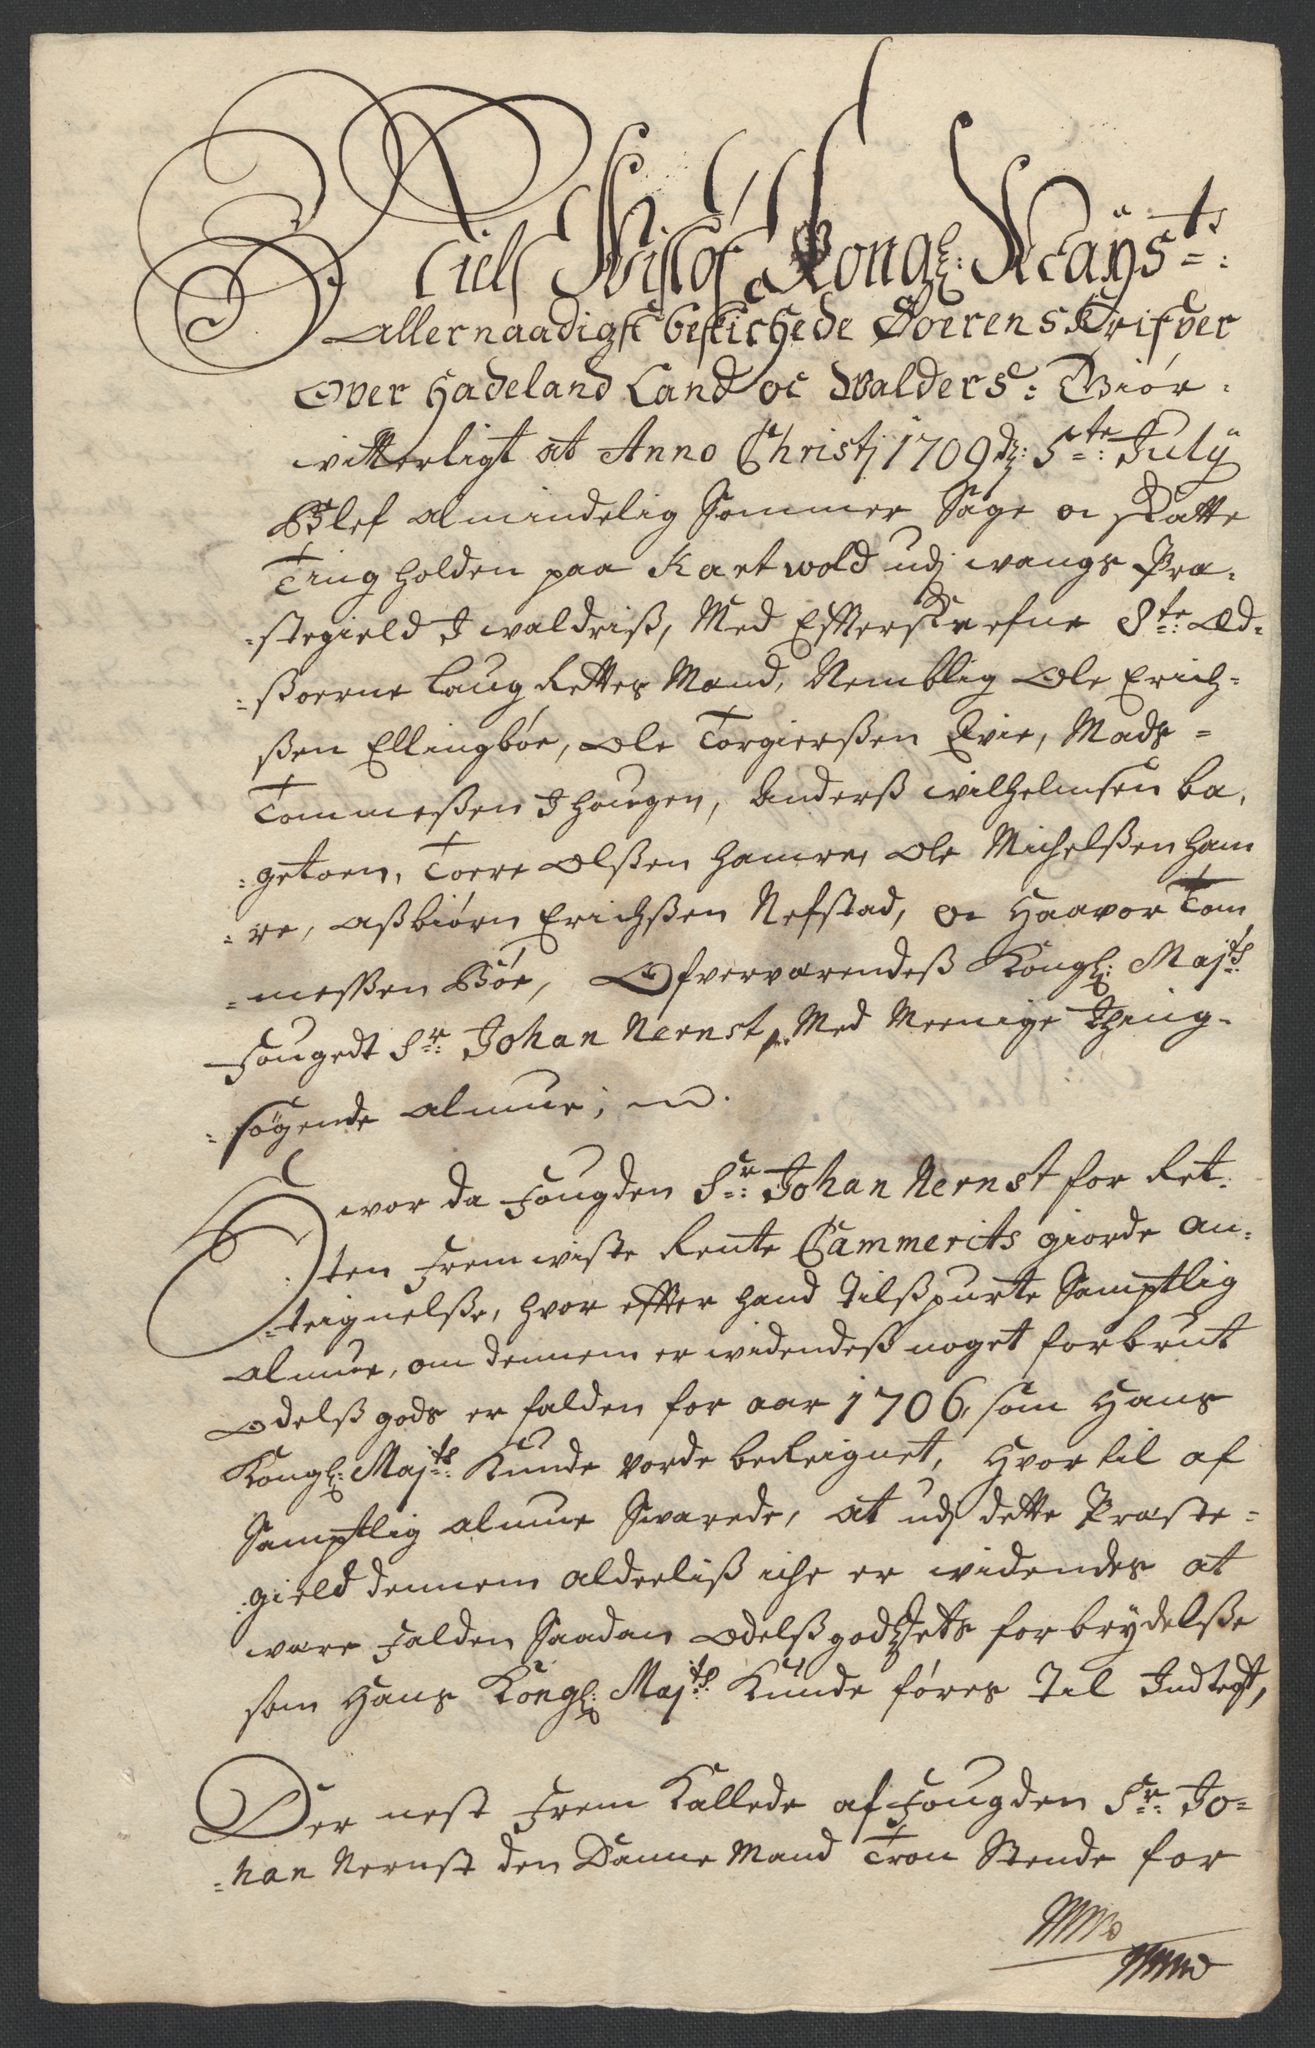 Niels Wislof Kongl: Mayts:
Allernaadigst beskichede Soerenskrifver
Over Hadeland Land oc Walders: Giör
witterligt at Anno Christj 1709 dz: 5te: July
Blef almindelig Sommer Sage oc Skatte
Ting holden paa Kartwold udj Wangs Præ-
-stegield I Waldriss, Med Effterskrefne 8te: Æd-
-ssoerne Laug Rettes Mænd, Nemblig Ole Erich-
ssen Ellingböe, Ole Torgierssen Qvie, Mads-
Tommessen I Hougen, Anderss Wilhelmsen ba-
-getoen, Torre Olssen Hamre, Ole Michelssen Ham
-re, Assbiörn Erichssen Nefstad, oc Haavor Tom
-messen Böe, Ofverværendess Kongl: Maj:ts
Fougedt Sr: Johan Nernst, Med Meenige Thing-
-sögende Almue,
Hvor da Fougden Sr: Johan Nernst for Ret-
-ten Fremwiste Rente Cammerits giorde An-
-teignelsse, hvor effter hand Tilsspurte Samptlig
Almue, om dennem er widendess noget forbrut
Odelss gods er falden for aar 1706, som Hans
Kongl: Maj:ts Kunde vorde bereignet, Hvortil af
Samptlig Almue Swarede, at udj dette Præste-
-gield dennem alderliss iche er widendes at
være Falden Saadan Odelss godtzets forbrydelsse
som Hans Kongl: Maj:ts Kunde föres Til Indtegt,
Der nest Frem Kallede af Fougden Sr: Jo-
-han Nernst den Danne Mand Tron Stende for